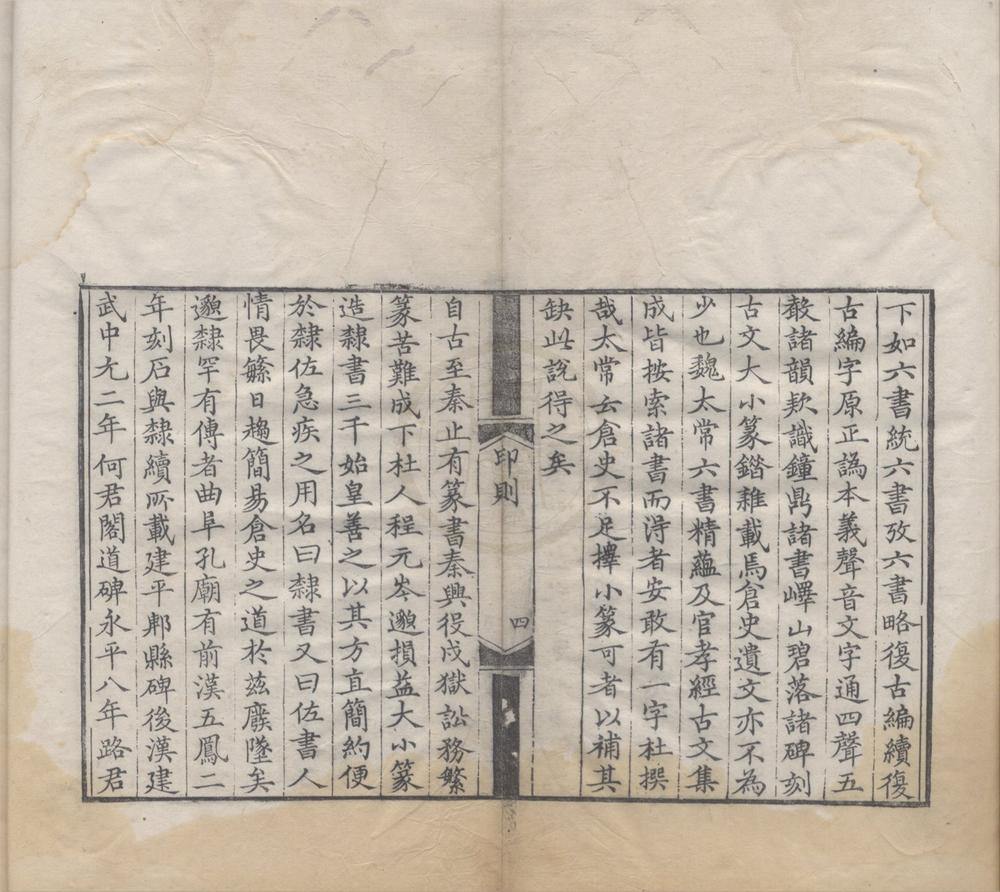 下如六書統六書攷六書略復古編續復
古編字原正譌本義聲音文字通四聲五
聲諸韻欵識鐘鼎諸書嶧山碧落諸碑刻
古文大小篆鍇雜載焉倉史遺文亦不為
少也魏太常六書精藴及官孝經古文集
成皆按索諸書而淂者安敢有一字杜撰
哉太常云倉史不足擇小篆可者以補其
缺此說得之矣
印則
四
自古至秦止有篆書秦興役戍獄訟務繁
篆苦難成下杜人程元岑邈損益大小篆
造隸書三千始皇善之以其方直簡約便
於隸佐急疾之用名曰隸書又曰佐書人
情畏䋣日趨簡易倉史之道於兹廢墜矣
邈隸罕有傳者曲阜孔廟有前漢五鳳二
年刻石與隸續所載建平郫縣碑後漢建
武中元二年何君閣道碑永平八年路君